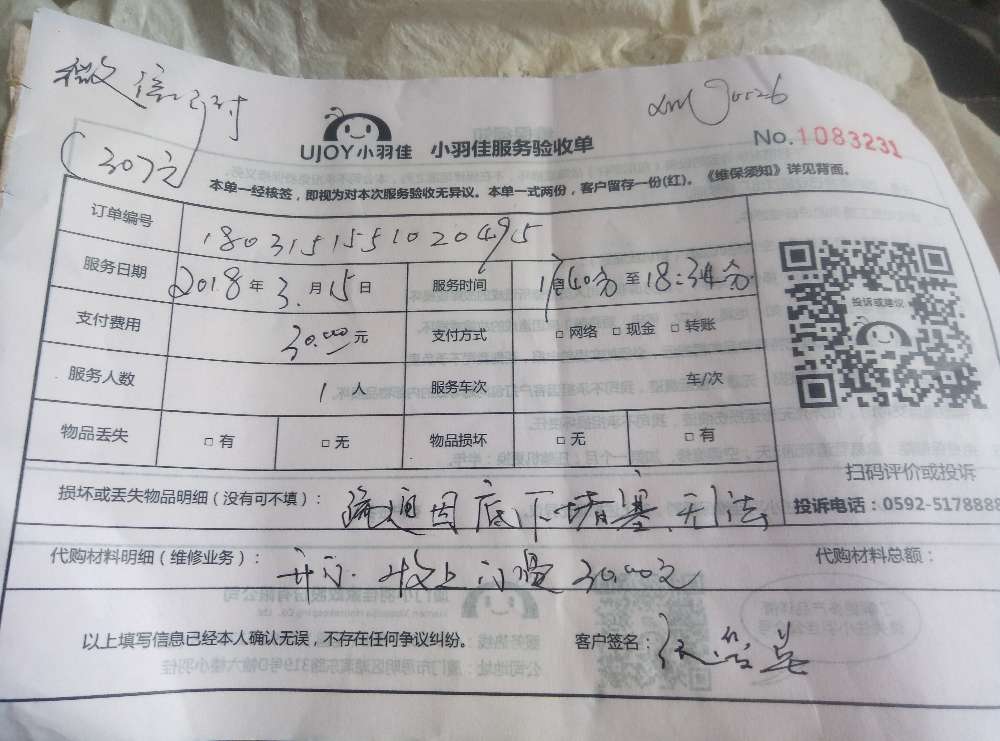 微信付
(30元)
UJOY小羽佳 小羽佳服务验收单
No.1083231
本单一经核签，即视为对本次服务验收无异议。本单一式两份，客户留存一份(红)。《维保须知》详见背面。
订单编号 1803151551020495
服务日期 2018年3月15日 服务时间 40分至18:34分
支付费用 30.00元 支付方式 □网络 □现金 □转账
服务人数 1人 服务车次 车/次
物品丢失 □有 □无 物品损坏 □无 □有
投诉或建议
扫码评价或投诉
投诉电话：0592-5178888
损坏或丢失物品明细（没有可不填）： 疏通因底下堵塞.无法
代购材料明细（维修业务）： 30.00元 代购材料总额：
以上填写信息已经本人确认无误，不存在任何争议纠纷。 客户签名：